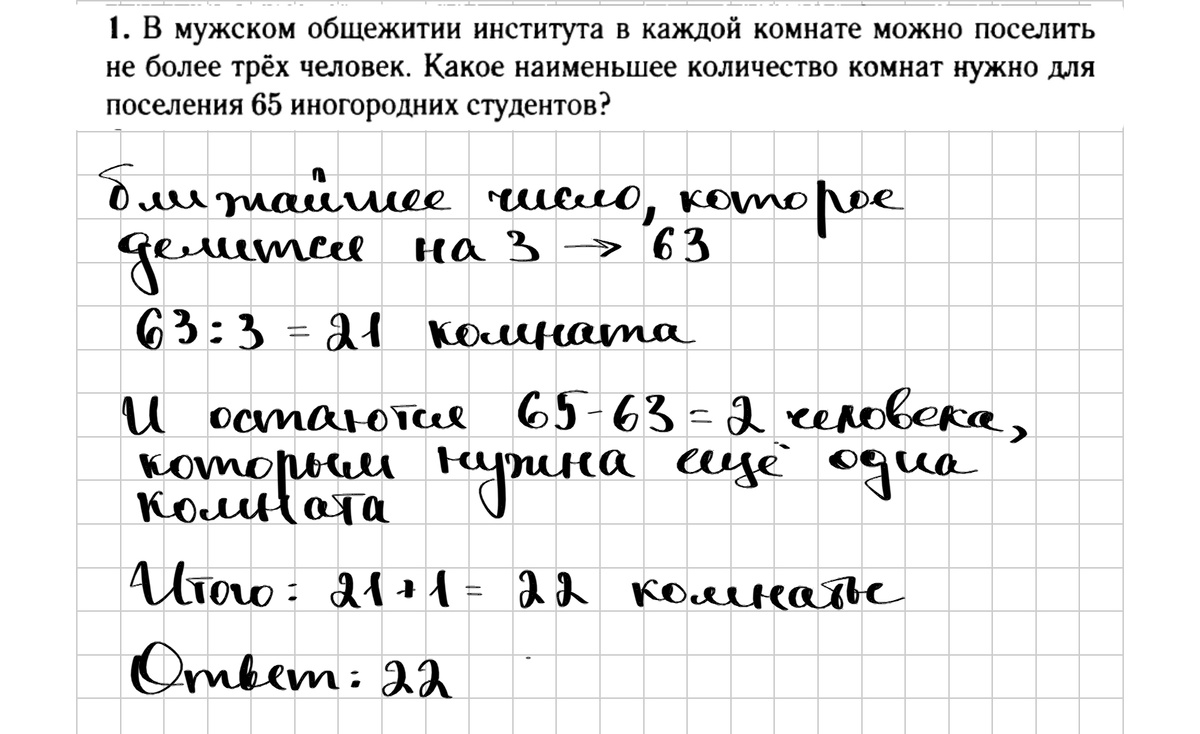 1. В мужском общежитии института в каждой комнате можно поселить
не более трёх человек. Какое наименьшее количество комнат нужно для
поселения 65 иногородних студентов?
ближайшее число, которое
делится на 3 → 63
63 : 3 = 21 комната
И остаются 65 - 63 = 2 человека,
которым нужна ещё одна
комната
Итого: 21 + 1 = 22 комнаты
Ответ: 22